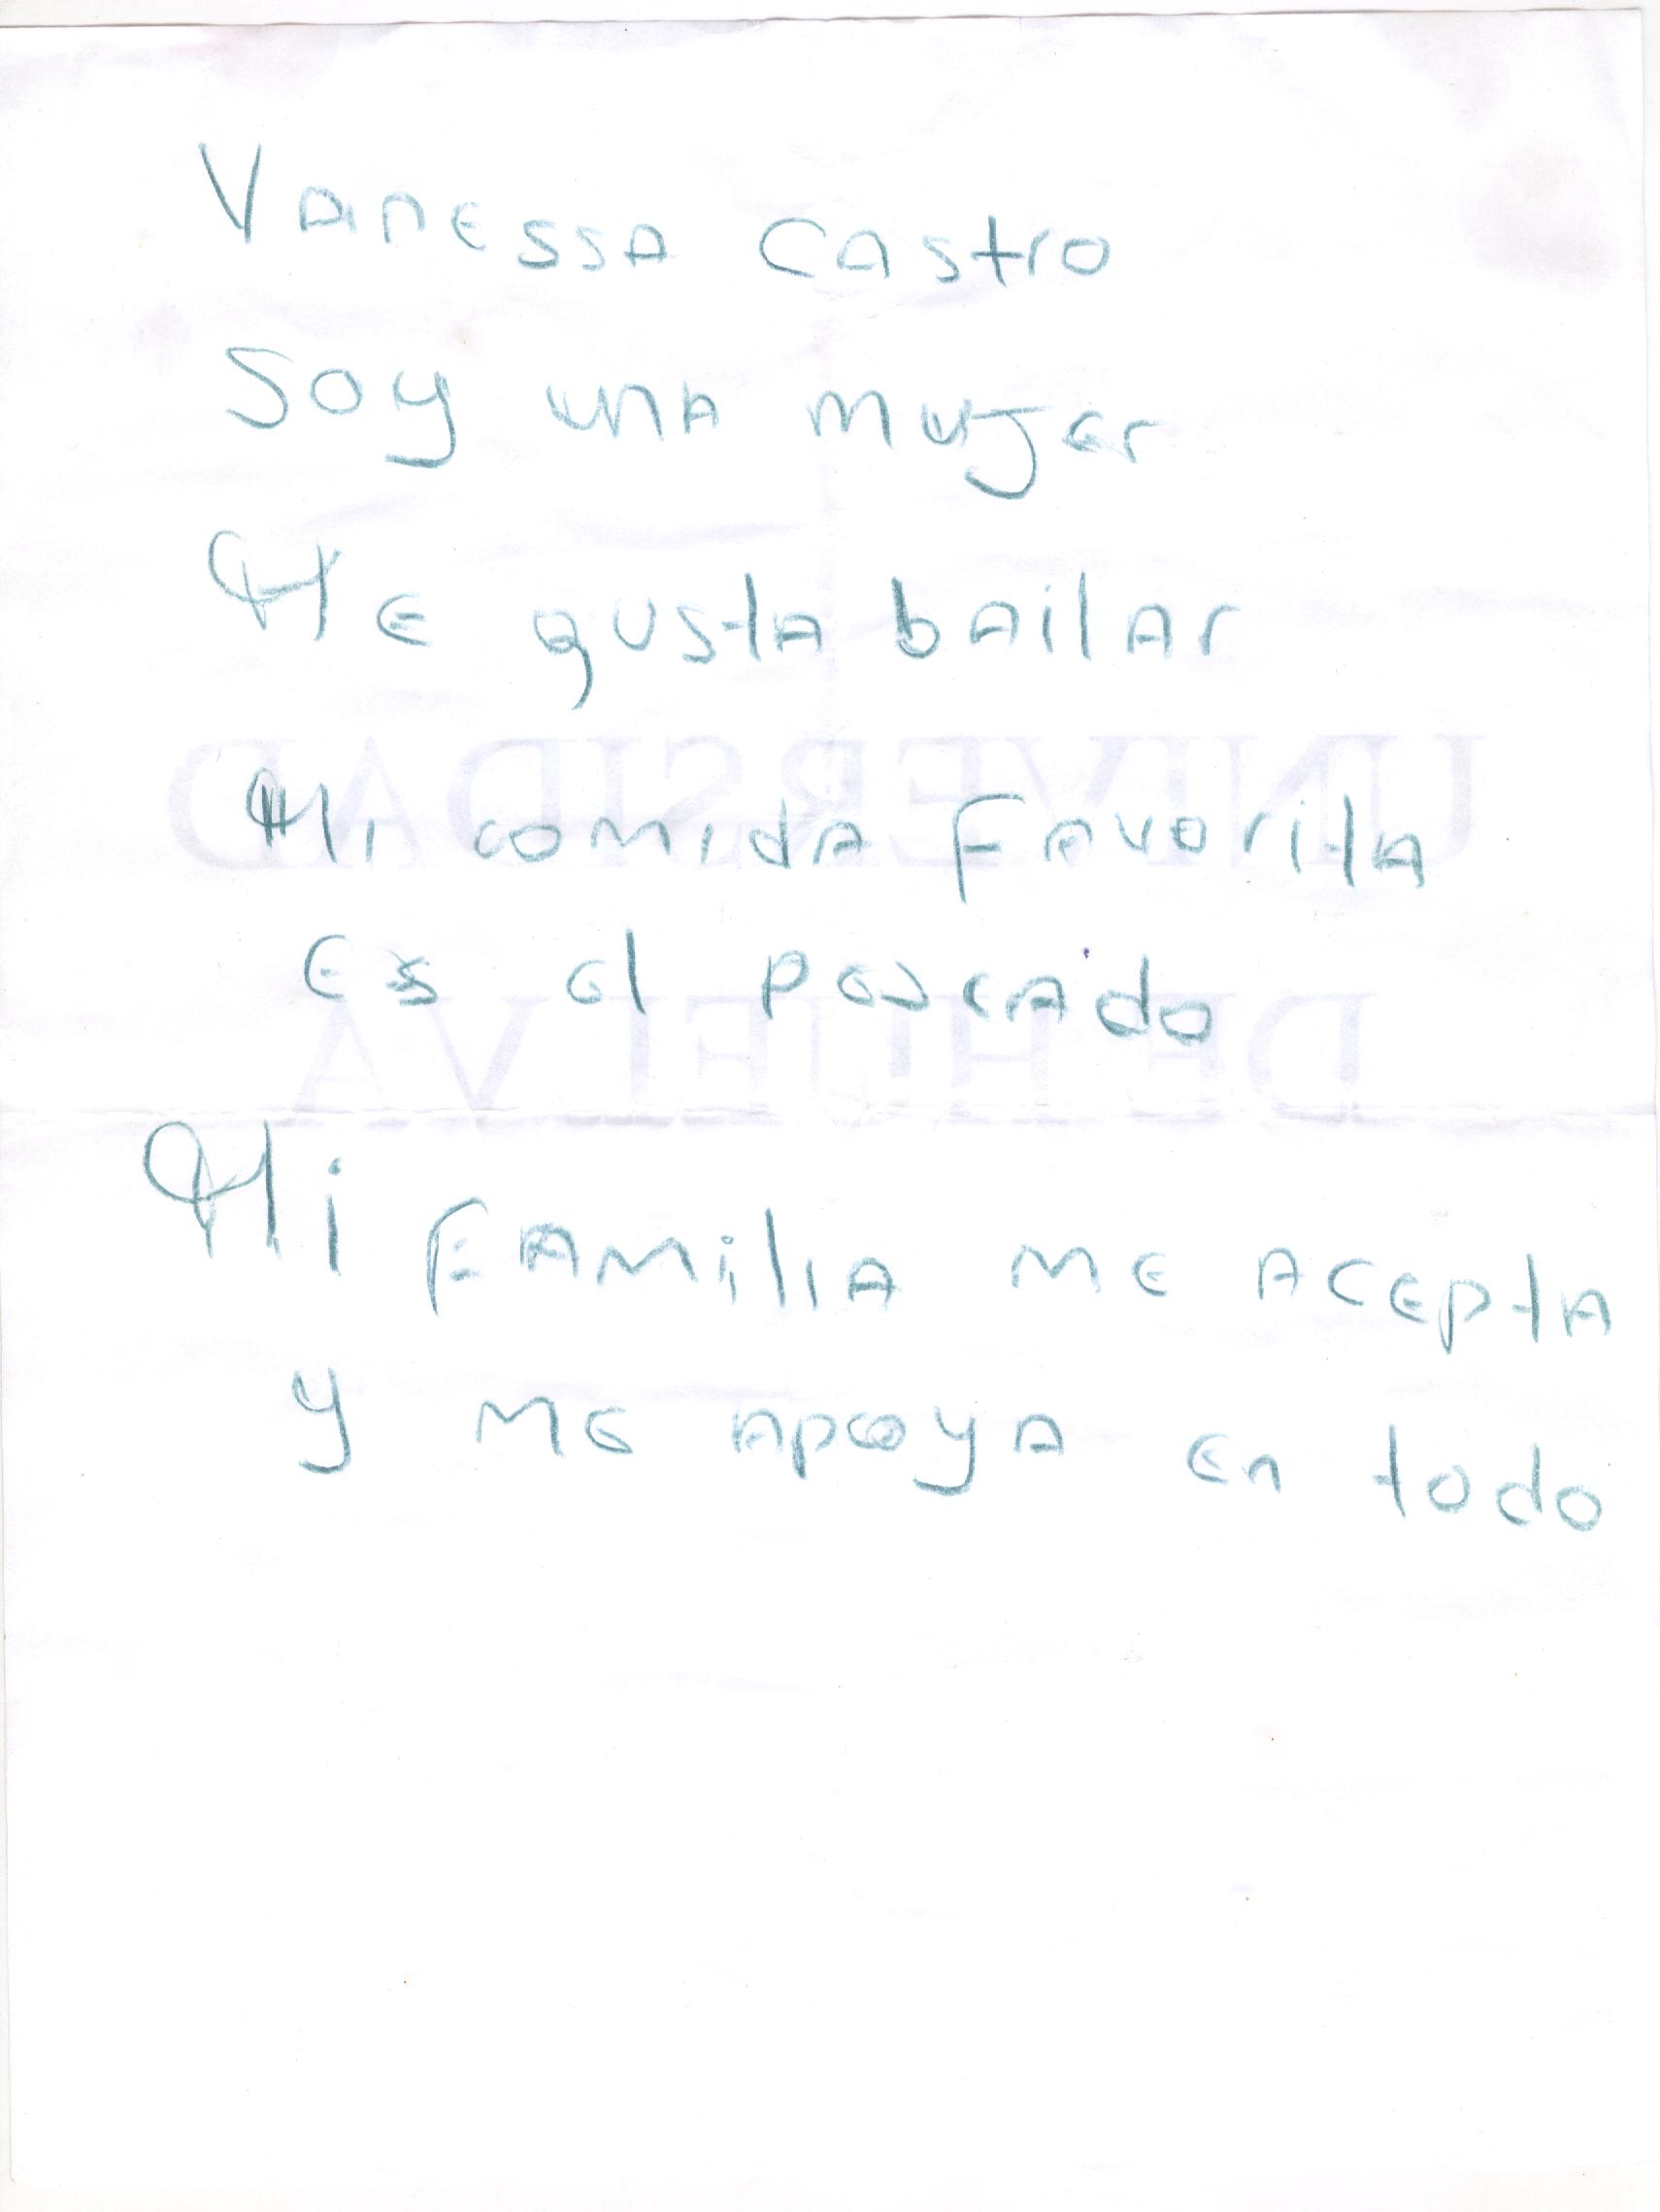 Vanessa Castro
Soy una mujer
Me gusta bailar
Mi comida favorita
es el pescado
Mi familia me acepta
y me apoya en todo
UNIVERSIDAD
DE HUELVA